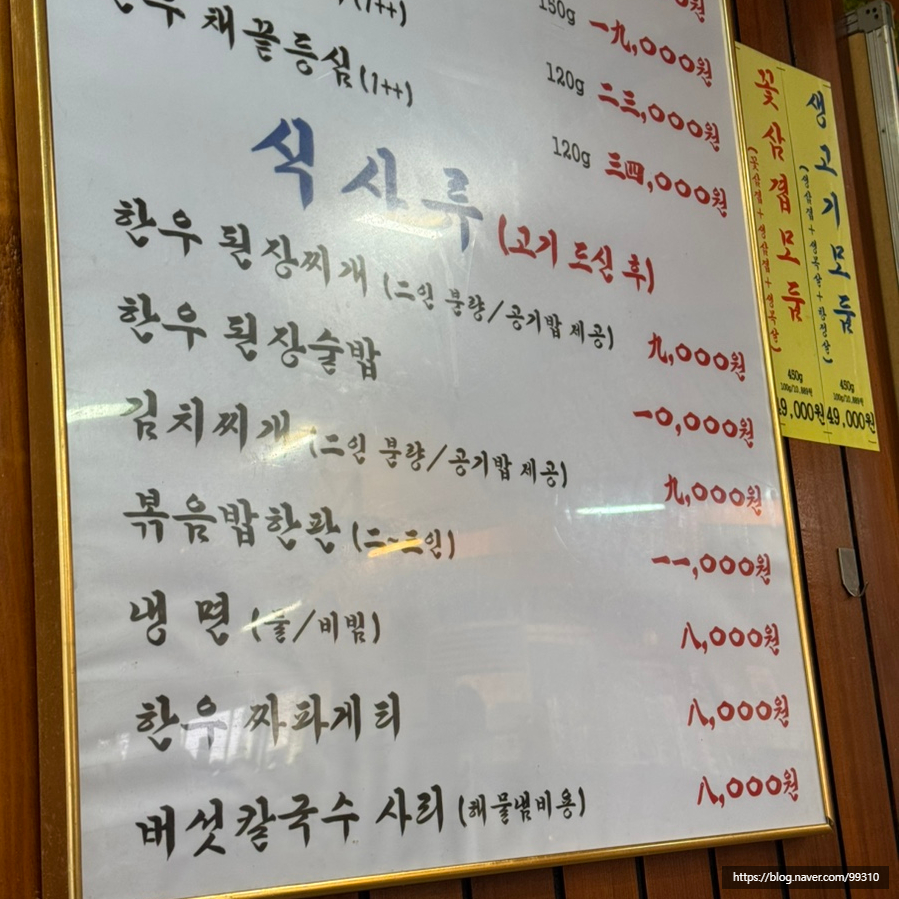 (1++) 150g 一九,000원
한우 채끝등심 (1++) 120g 二三,000원
120g 三四,000원
식사류 (고기 드신 후)
한우 된장찌개 (二인 분량/공기밥 제공) 九,000원
한우 된장술밥 一0,000원
김치찌개 (二인 분량/공기밥 제공) 九,000원
볶음밥한판 (二~三인) 一一,000원
냉면 (물/비빔) 八,000원
한우 짜파게티 八,000원
버섯칼국수 사리 (해물냄비용) 八,000원
꽃삼겹모둠
(꽃삼겹+생삼겹+생목살)
450g
49,000원
생고기모둠
(생삼겹+생목살+항정살)
450g
49,000원
https://blog.naver.com/99310